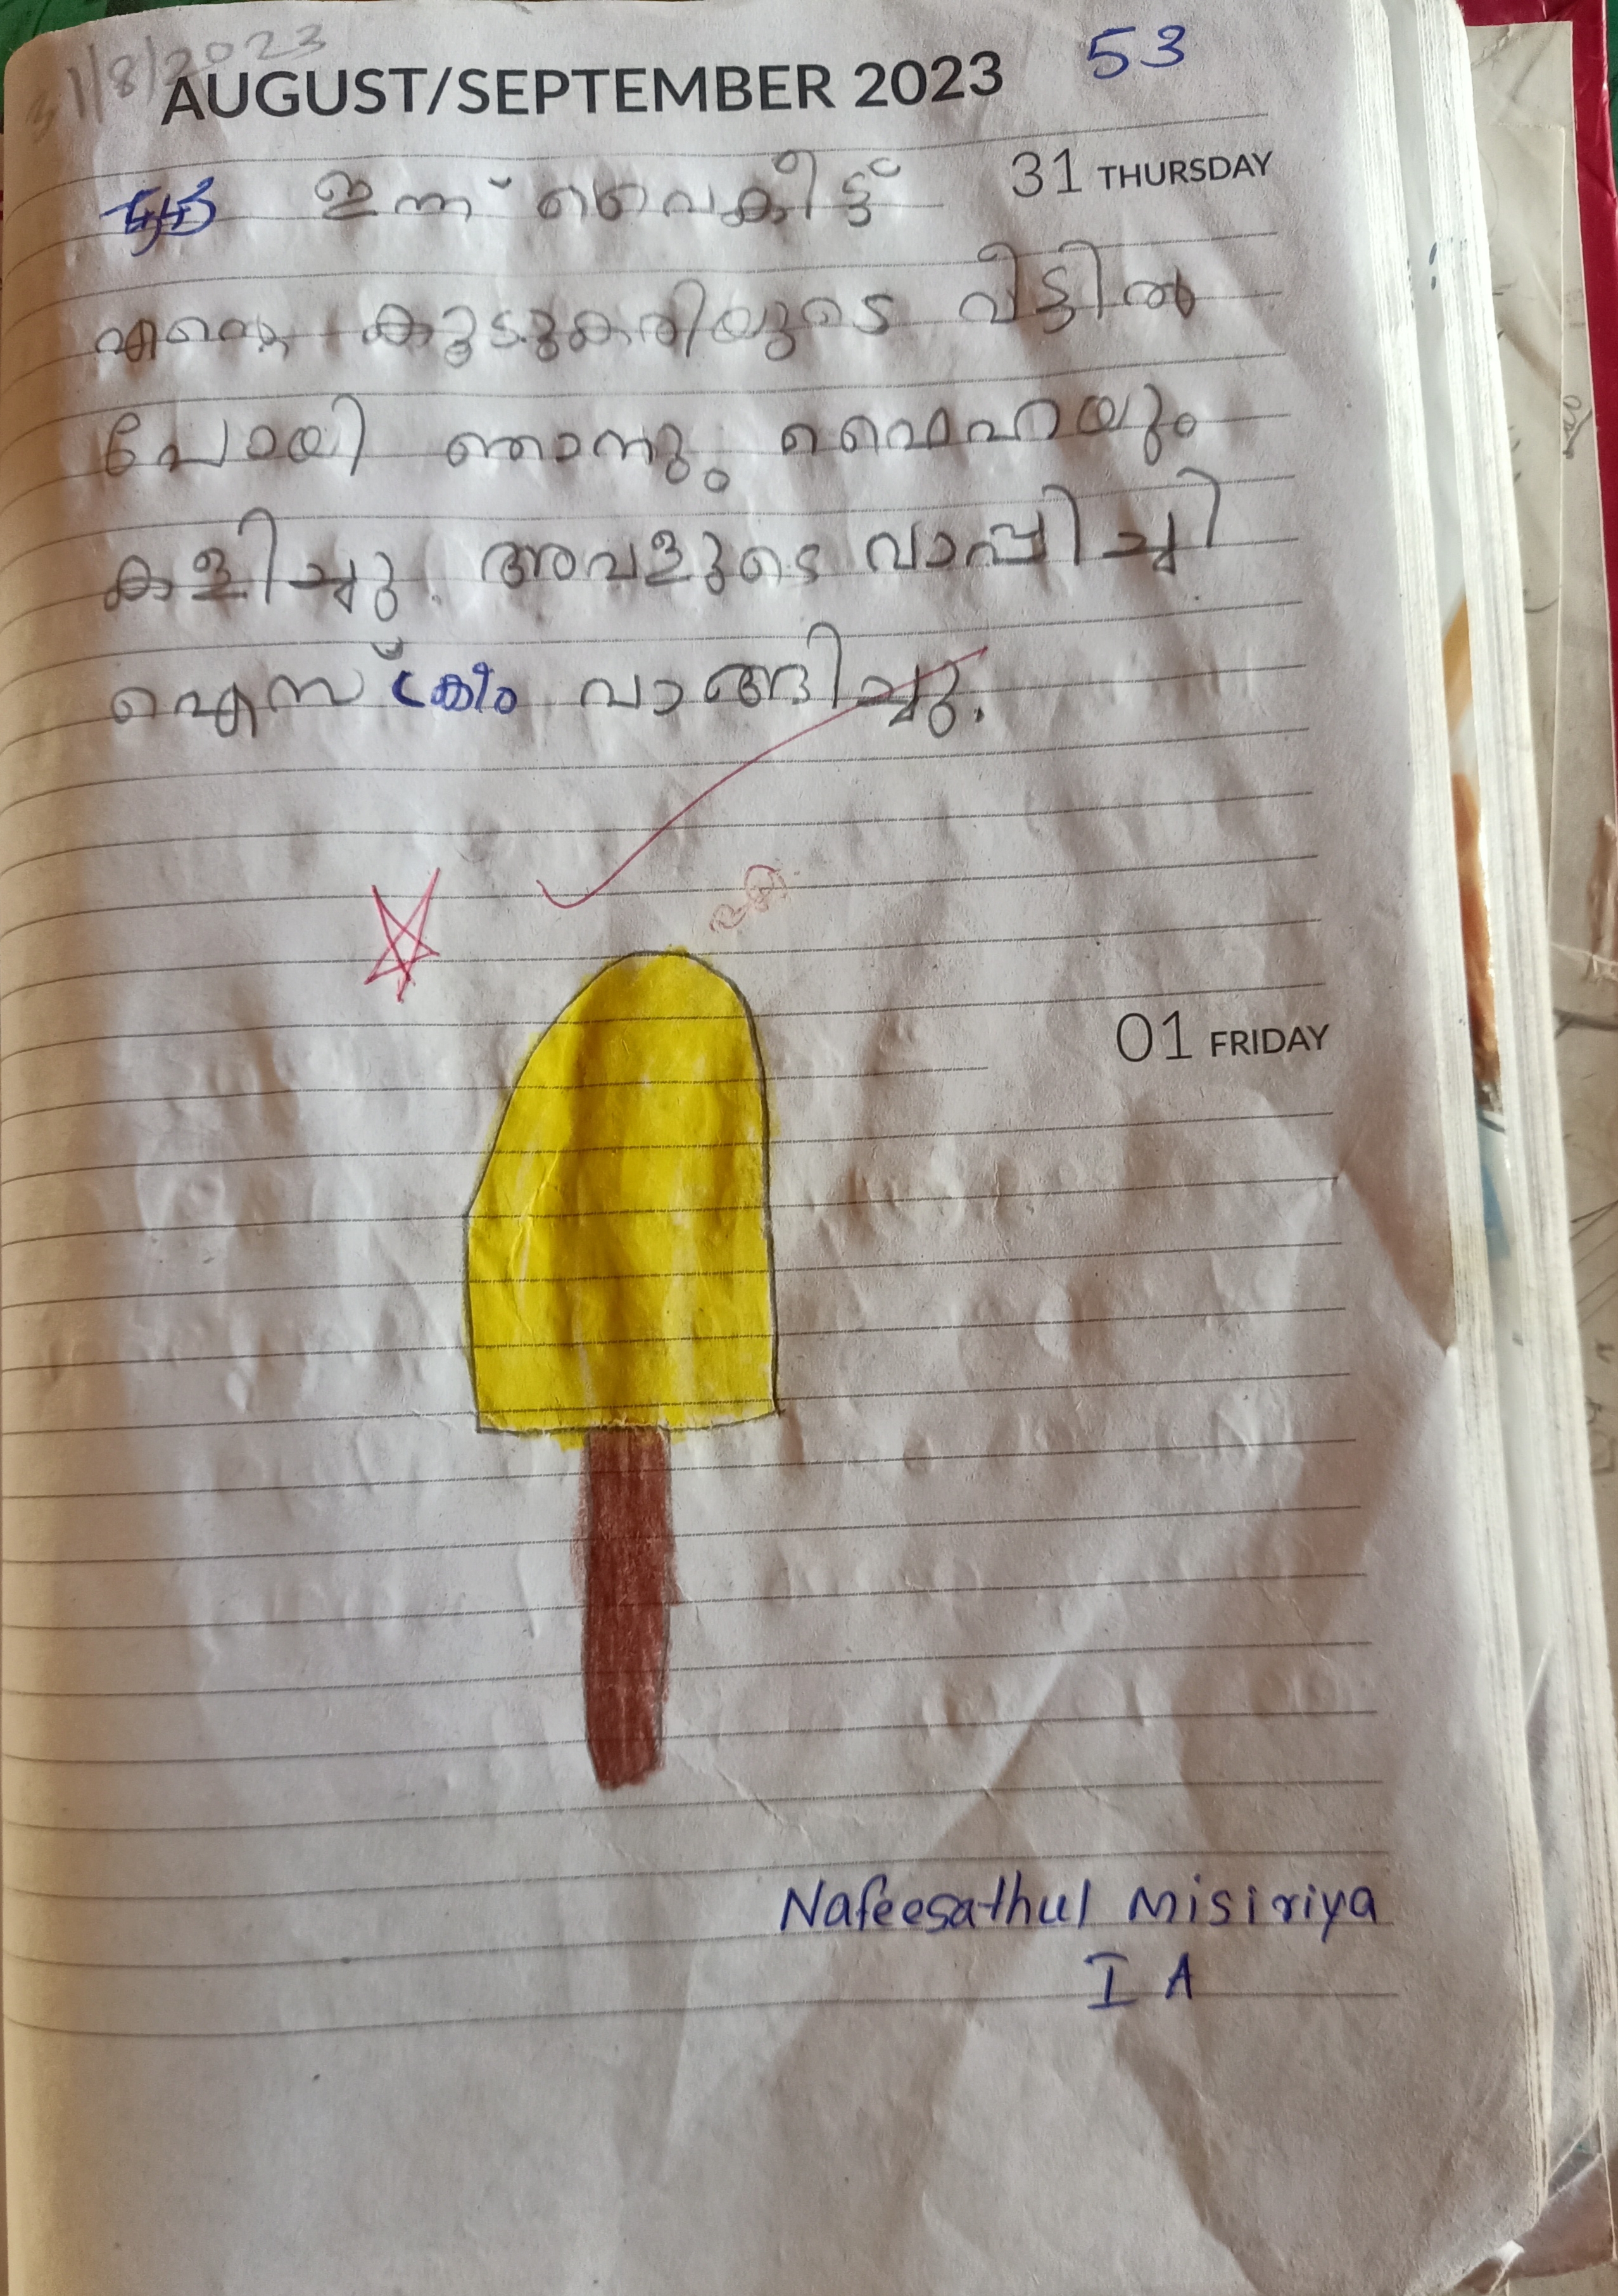 31/8/2023
AUGUST/SEPTEMBER 2023 53
31 THURSDAY
ഇന്ന് വൈകീട്ട്
എന്റെ കൂടുകരിയുടെ വീട്ടിൽ
പോയി ഞാനും ഫൈഹയും
കളിച്ചു. അവളുടെ വാപ്പിച്ചി
ഐസ് ക്രീം വാങ്ങിച്ചു.
01 FRIDAY
Nafeesathul Misiriya
I A